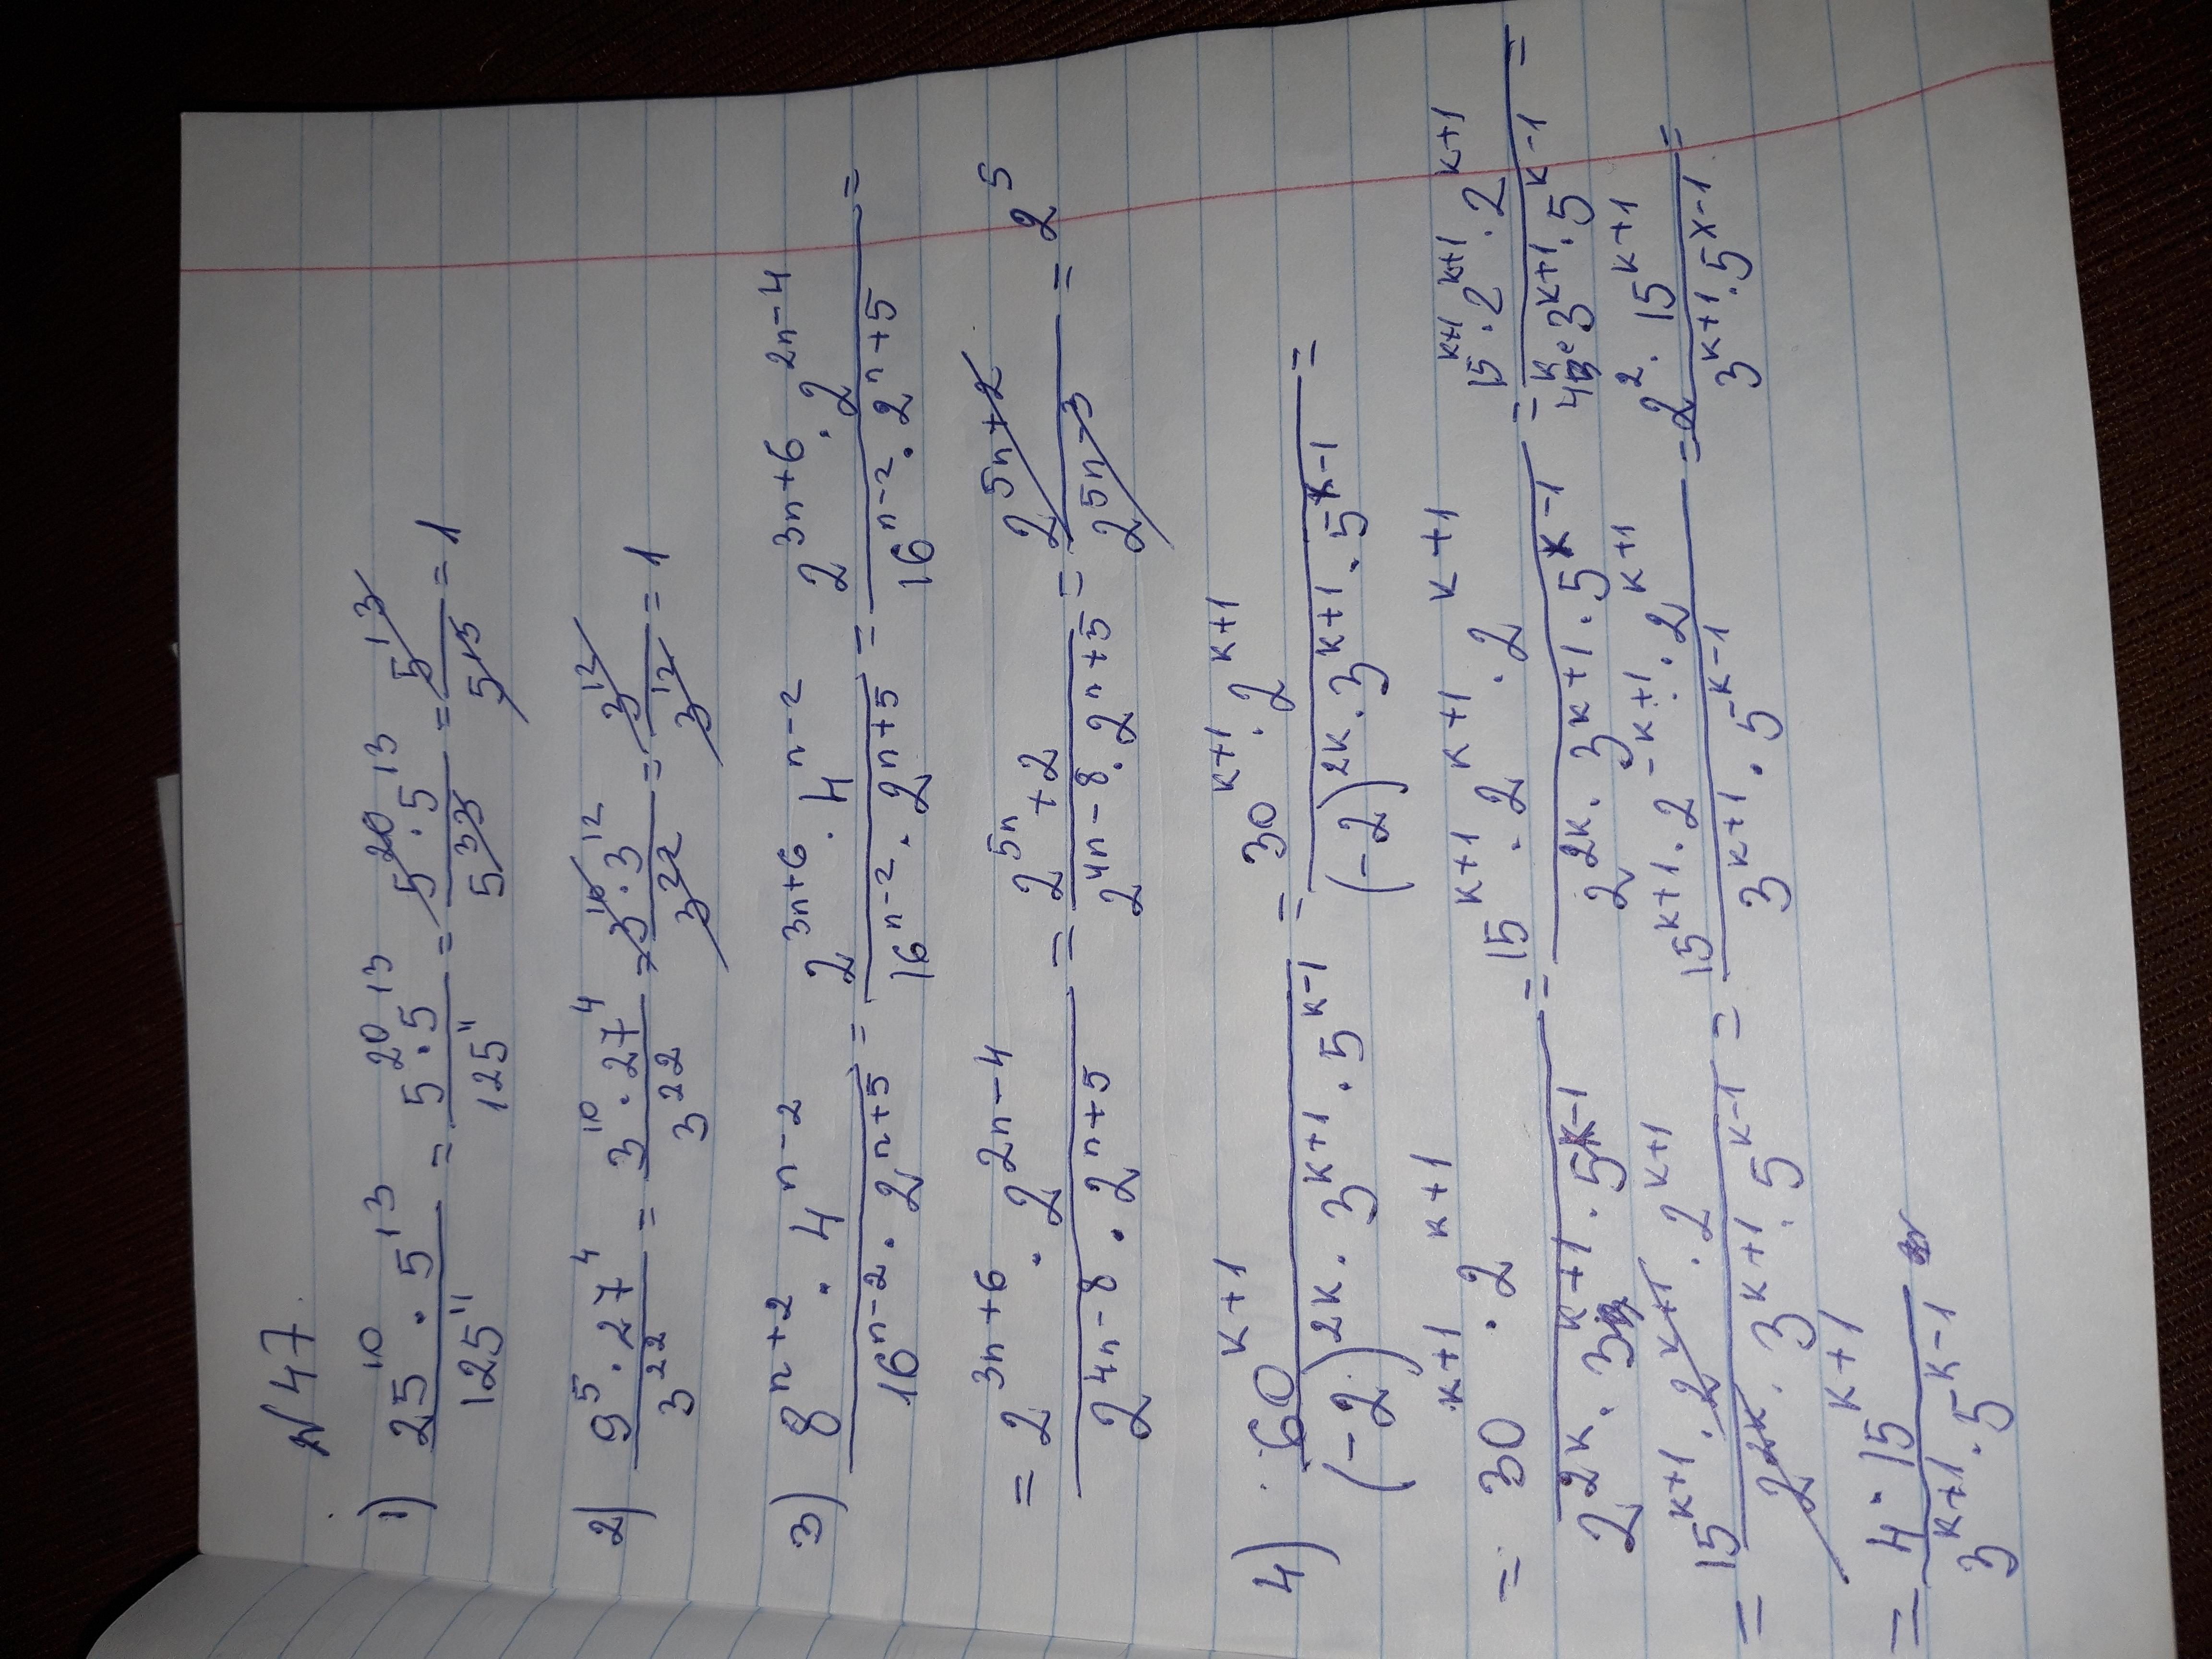 N 47.
1) 25¹⁰ · 5¹³ / 125¹¹ = 5²⁰ · 5¹³ / 125¹¹ = 5²⁰ · 5¹³ / 5³³ = 5¹³ / 5¹³ = 1
2) 9⁵ · 27⁴ / 3²² = 3¹⁰ · 27⁴ / 3²² = 3¹⁰ · 3¹² / 3²² = 3¹² / 3¹² = 1
3) 8ⁿ⁺² · 4ⁿ⁻² / 16ⁿ⁻² · 2ⁿ⁺⁵ = 2³ⁿ⁺⁶ · 4ⁿ⁻² / 16ⁿ⁻² · 2ⁿ⁺⁵ = 2³ⁿ⁺⁶ · 2²ⁿ⁻⁴ / 16ⁿ⁻² · 2ⁿ⁺⁵ =
= 2³ⁿ⁺⁶ · 2²ⁿ⁻⁴ / 2⁴ⁿ⁻⁸ · 2ⁿ⁺⁵ = 2⁵ⁿ⁺² / 2⁴ⁿ⁻⁸ · 2ⁿ⁺⁵ = 2⁵ⁿ⁺² / 2⁵ⁿ⁻³ = 2⁵
4) 60ᵏ⁺¹ / (-2)²ᵏ · 3ᵏ⁺¹ · 5ᵏ⁻¹ = 30ᵏ⁺¹ · 2ᵏ⁺¹ / (-2)²ᵏ · 3ᵏ⁺¹ · 5ᵏ⁻¹ =
= 30ᵏ⁺¹ · 2ᵏ⁺¹ / 2²ᵏ · 3ᵏ⁺¹ · 5ᵏ⁻¹ = 15ᵏ⁺¹ · 2ᵏ⁺¹ · 2ᵏ⁺¹ / 2²ᵏ · 3ᵏ⁺¹ · 5ᵏ⁻¹ = 15ᵏ⁺¹ · 2ᵏ⁺¹ · 2ᵏ⁺¹ / 4ᵏ · 3ᵏ⁺¹ · 5ᵏ⁻¹ =
= 15ᵏ⁺¹ · 2ᵏ⁺¹ · 2ᵏ⁺¹ / 2²ᵏ · 3ᵏ⁺¹ · 5ᵏ⁻¹ = 15ᵏ⁺¹ · 2⁻ᵏ⁺¹ · 2ᵏ⁺¹ / 3ᵏ⁺¹ · 5ᵏ⁻¹ = 2² · 15ᵏ⁺¹ / 3ᵏ⁺¹ · 5ᵏ⁻¹ =
= 4 · 15ᵏ⁺¹ / 3ᵏ⁺¹ · 5ᵏ⁻¹